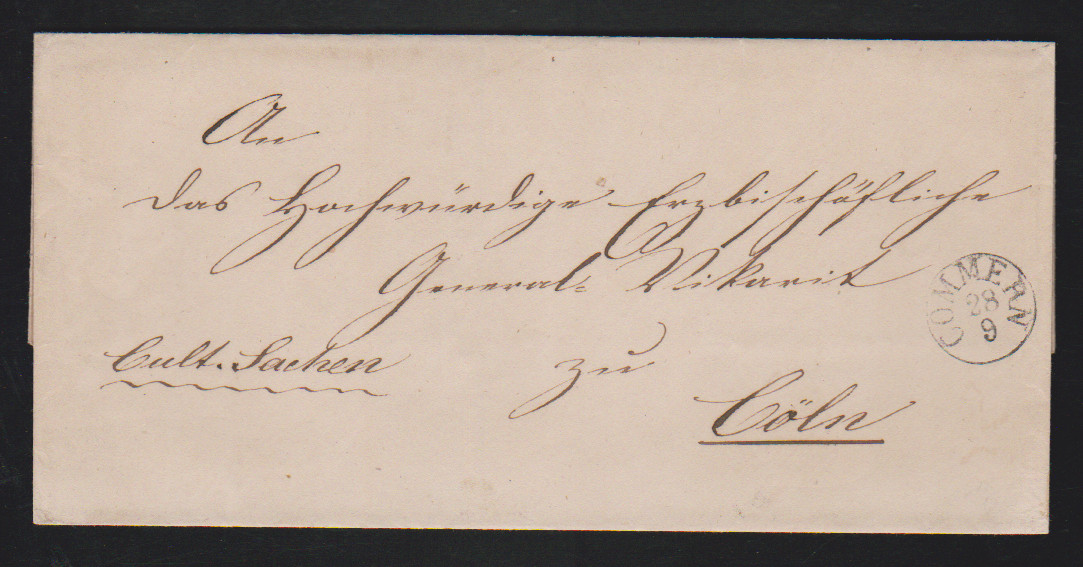 An
das Hochwürdige Erzbischöfliche
General- Vikariat
Cult. Sachen
zu
Cöln
COMMERN
28
9